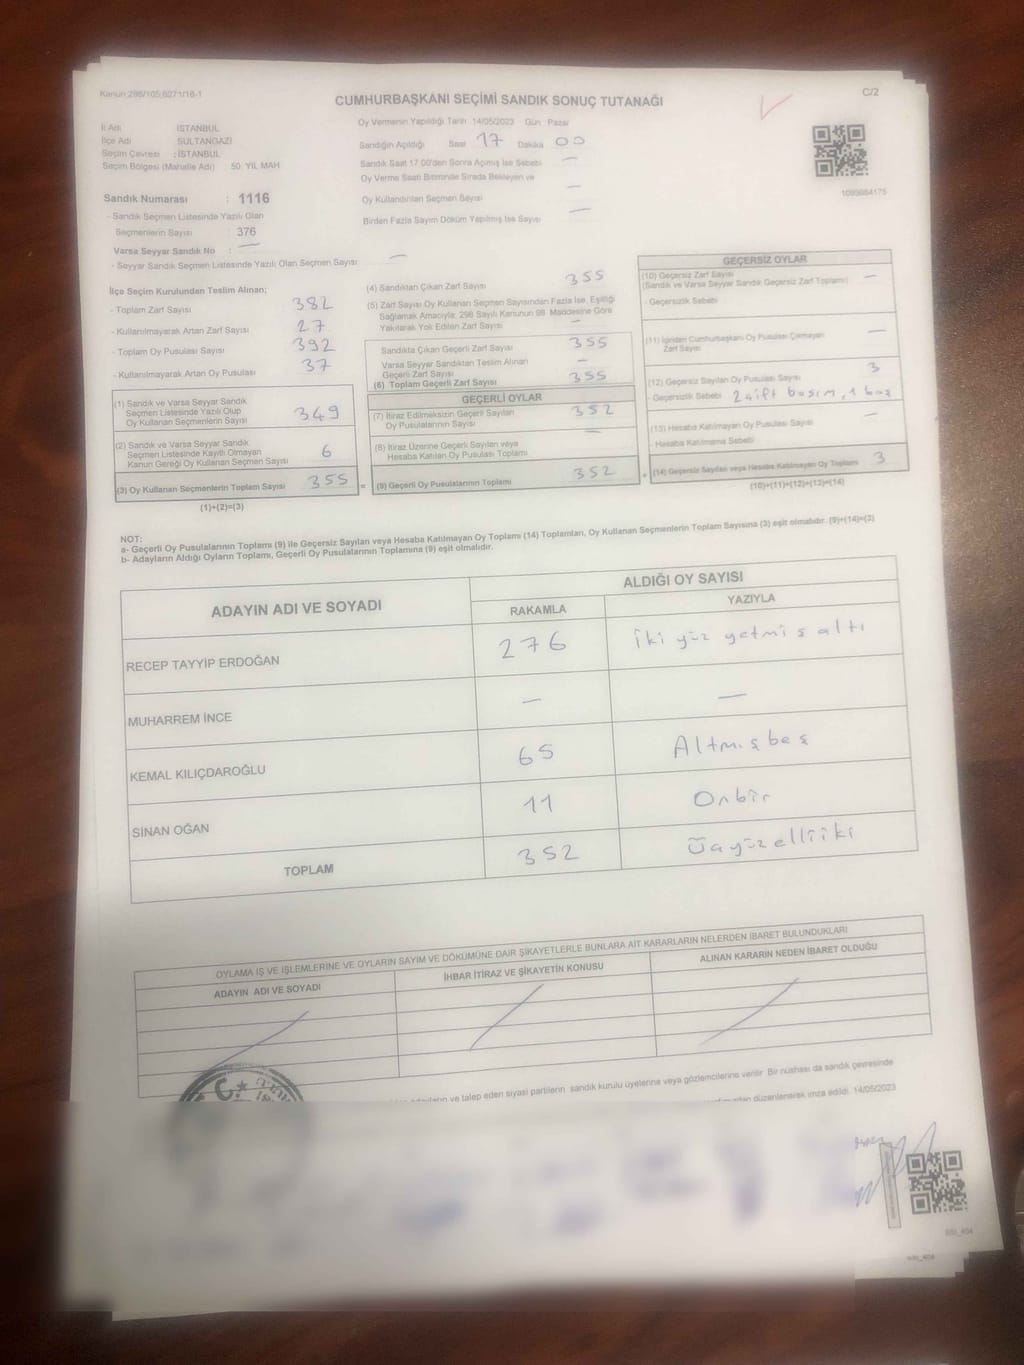 Kanun;298/105;6271/16-1
C/2
CUMHURBAŞKANI SEÇİMİ SANDIK SONUÇ TUTANAĞI
İl Adı İSTANBUL
İlçe Adı SULTANGAZİ
Seçim Çevresi : İSTANBUL
Seçim Bölgesi (Mahalle Adı) 50. YIL MAH
Sandık Numarası : 1116
- Sandık Seçmen Listesinde Yazılı Olan
Seçmenlerin Sayısı 376
Varsa Seyyar Sandık No : —
- Seyyar Sandık Seçmen Listesinde Yazılı Olan Seçmen Sayısı —
Oy Vermenin Yapıldığı Tarih 14/05/2023 Gün Pazar
Sandığın Açıldığı Saat 17 Dakika 00
Sandık Saat 17.00'den Sonra Açımış İse Sebebi —
Oy Verme Saati Bitiminde Sırada Bekleyen ve
Oy Kullandırılan Seçmen Sayısı —
Birden Fazla Sayım Döküm Yapılmış İse Sayısı —
1095684175
İlçe Seçim Kurulundan Teslim Alınan;
- Toplam Zarf Sayısı 382
- Kullanılmayarak Artan Zarf Sayısı 27
- Toplam Oy Pusulası Sayısı 392
- Kullanılmayarak Artan Oy Pusulası 37
(1) Sandık ve Varsa Seyyar Sandık
Seçmen Listesinde Yazılı Olup
Oy Kullanan Seçmenlerin Sayısı 349
(2) Sandık ve Varsa Seyyar Sandık
Seçmen Listesinde Kayıtlı Olmayan
Kanun Gereği Oy Kullanan Seçmen Sayısı 6
(3) Oy Kullanan Seçmenlerin Toplam Sayısı 355
(1)+(2)=(3)
(4) Sandıktan Çıkan Zarf Sayısı 355
(5) Zarf Sayısı Oy Kullanan Seçmen Sayısından Fazla İse, Eşitliği
Sağlamak Amacıyla; 298 Sayılı Kanunun 98. Maddesine Göre
Yakılarak Yok Edilen Zarf Sayısı —
Sandıkta Çıkan Geçerli Zarf Sayısı 355
Varsa Seyyar Sandıktan Teslim Alınan
Geçerli Zarf Sayısı —
(6) Toplam Geçerli Zarf Sayısı 355
GEÇERLİ OYLAR
(7) İtiraz Edilmeksizin Geçerli Sayılan
Oy Pusulalarının Sayısı 352
(8) İtiraz Üzerine Geçerli Sayılan veya
Hesaba Katılan Oy Pusulası Toplamı —
= (9) Geçerli Oy Pusulalarının Toplamı 352
GEÇERSİZ OYLAR
(10) Geçersiz Zarf Sayısı —
(Sandık ve Varsa Seyyar Sandık Geçersiz Zarf Toplamı)
- Geçersizlik Sebebi
(11) İçinden Cumhurbaşkanı Oy Pusulası Çıkmayan
Zarf Sayısı —
(12) Geçersiz Sayılan Oy Pusulası Sayısı 3
- Geçersizlik Sebebi 2 çift basım, 1 boş
(13) Hesaba Katılmayan Oy Pusulası Sayısı —
- Hesaba Katılmama Sebebi
+ (14) Geçersiz Sayılan veya Hesaba Katılmayan Oy Toplamı 3
(10)+(11)+(12)+(13)=(14)
NOT:
a- Geçerli Oy Pusulalarının Toplamı (9) ile Geçersiz Sayılan veya Hesaba Katılmayan Oy Toplamı (14) Toplamları, Oy Kullanan Seçmenlerin Toplam Sayısına (3) eşit olmalıdır. (9)+(14)=(3)
b- Adayların Aldığı Oyların Toplamı, Geçerli Oy Pusulalarının Toplamına (9) eşit olmalıdır.
ADAYIN ADI VE SOYADI
ALDIĞI OY SAYISI
RAKAMLA YAZIYLA
RECEP TAYYİP ERDOĞAN 276 iki yüz yetmiş altı
MUHARREM İNCE — —
KEMAL KILIÇDAROĞLU 65 Altmışbeş
SİNAN OĞAN 11 Onbir
TOPLAM 352 Üçyüzelliiki
OYLAMA İŞ VE İŞLEMLERİNE VE OYLARIN SAYIM VE DÖKÜMÜNE DAİR ŞİKAYETLERLE BUNLARA AİT KARARLARIN NELERDEN İBARET BULUNDUKLARI
ADAYIN ADI VE SOYADI İHBAR İTİRAZ VE ŞİKAYETİN KONUSU ALINAN KARARIN NEDEN İBARET OLDUĞU
adayların ve talep eden siyasi partilerin sandık kurulu üyelerine veya gözlemcilerine verilir. Bir nüshası da sandık çevresinde
düzenlenerek imza edildi. 14/05/2023